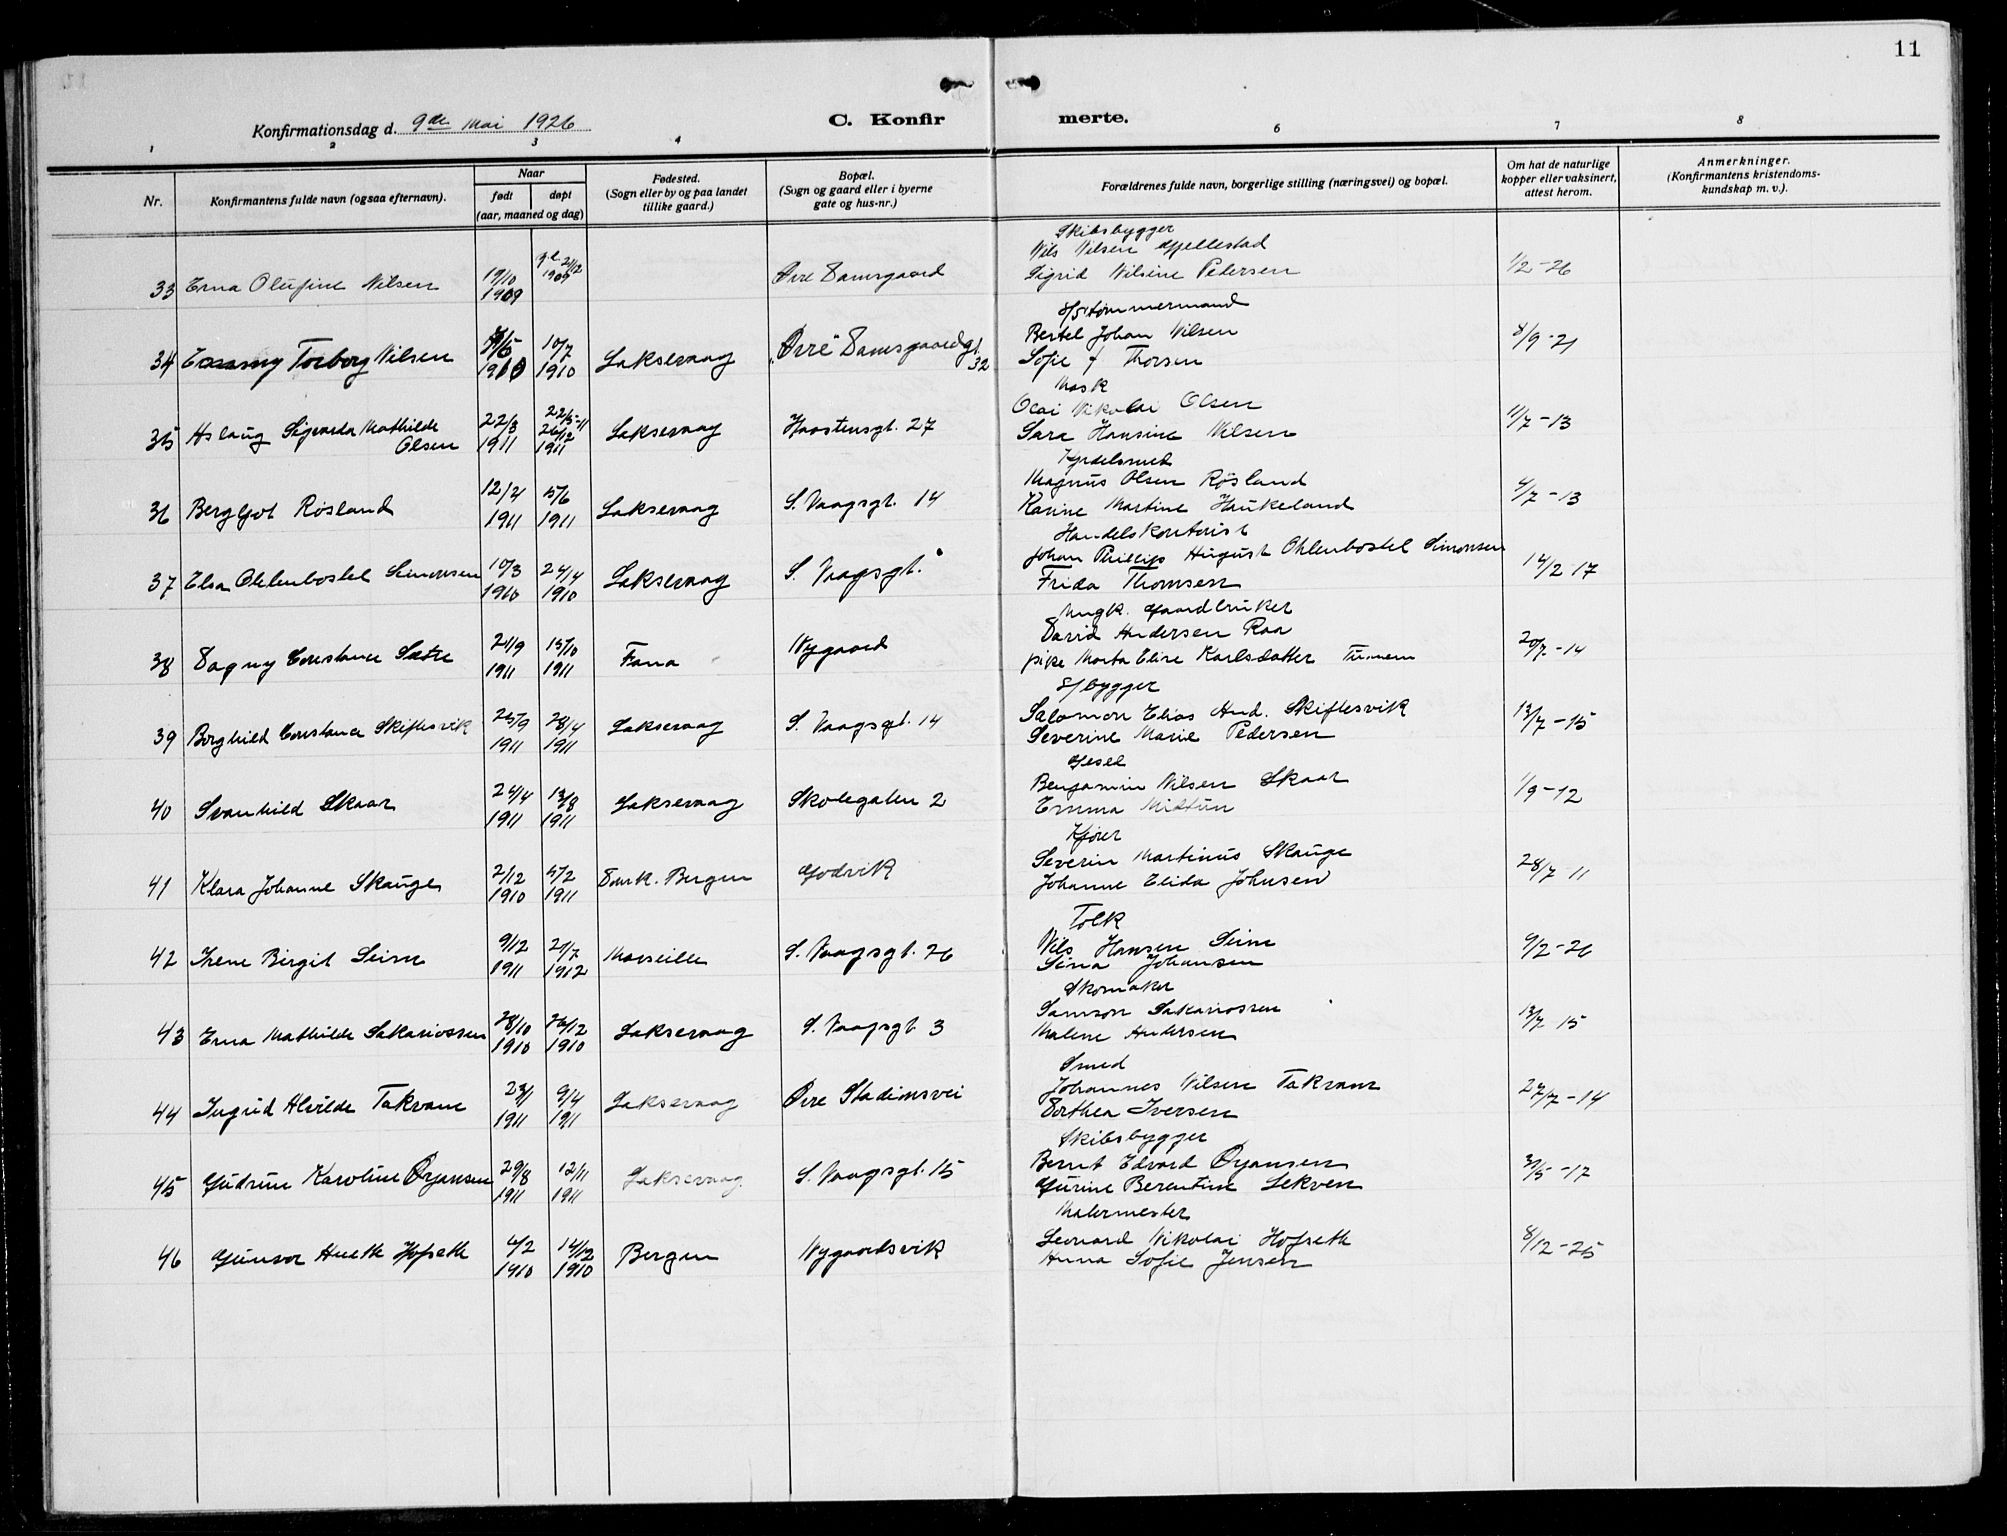 11
Konfirmationsdag d. 9de Mai 1926
C. Konfirmerte.
1 2 3 4 6 7 8
Nr.
Konfirmantens fulde navn (ogsaa efternavn).
Naar
født døpt
(aar, maaned og dag)
Fødested.
(Sogn eller by og paa landet
tillike gaard.)
Bopæl.
(Sogn og gaard eller i byerne
gate og hus-nr.)
Forældrenes fulde navn, borgerlige stilling (næringsvei) og bopæl.
Om hat de naturlige
kopper eller vaksinert,
attest herom.
Anmerkninger.
(Konfirmantens kristendoms-
kundskap m. v.).
Skibsbygger
Nils Nilsen Gjellestad
33 Erna Olufine Nilsen 19/10 1909 21/12 1909 Øvre Damsgaard Sigrid Nilsine Petersen 1/2-26
s/s tømmermand
Bertel Johan Nilsen
34 Torborg Nilsen 1910 10/7 1910 Laksevaag "Øvre" Damsgaardgt. 32 Sofie f Thorsen 8/9-21
Mask
Olai Nikolai Olsen
35 Aslaug Sigvarda Mathilde Olsen 22/3 1911 26/12 1911 Laksevaag Haastensgt. 27 Sara Hansine Nilsen 11/7-13
Kjedelsmed
Magnus Olsen Røsland
36 Bergljot Røsland 12/4 1911 5/6 1911 Laksevaag S. Vaagsgt. 14 Karine Martine Haukeland 4/7-13
Handelskontorist
Johan Phillips August Ohlenbostel Simonsen
37 Elsa Ohlenbostel Simonsen 10/3 1910 24/4 1910 Laksevaag S. Vaagsgt. Frida Thomsen 14/2 17
Ungk. Gaardbruker
David Andersen Raa
38 Dagny Constance Sætre 21/9 1911 15/10 1911 Fana Nygaard pike Marta Elise Karlsdatter 20/7-14
s/bygger
Salomon Elias And. Skiftesvik
39 Borghild Constance Skiftesvik 25/9 1911 28/4 1911 Laksevaag S. Vaagsgt. 14 Severine Marie Pedersen 13/7-15
Gjesel
Benjamin Nilsen Skaar
40 Svanhild Skaar 24/4 1911 13/8 1911 Laksevaag Skolegaten 2 Emma Midtun 1/9-12
Kjører
Severin Martinus Skauge
41 Klara Johanne Skauge 2/12 1910 5/2 1911 Domk. Bergen Godvik Johanne Elida Johnsen 28/7-11
Tolk
Nils Hansen Seim
42 Irene Birgit Seim 9/12 1911 21/7 1912 Marseille S. Vaagsgt. 26 Sina Johansen 9/2-26
Skomaker
Samson Sakariassen
43 Erna Mathilde Sakariassen 28/10 1910 26/12 1910 Laksevaag S. Vaagsgt 3 Malene Andersen 13/7 15
Smed
Johannes Nilsen Takvam
44 Ingrid Alvilde Takvam 23/1 1911 9/4 1911 Laksevaag Øvre Stadionsvei Dorthea Iversen 27/7-14
Skibsbygger
Bernt Edvard Ørjansen
45 Gudrun Karoline Ørjansen 29/8 1911 12/11 1911 Laksevaag S. Vaagsgt. 15 Gurine Berentine Lekven 31/5-17
Malermester
Leonard Nikolai Hofseth
46 Gunvor Aneth Hofseth 4/2 1910 14/12 1910 Bergen Nygaardsvik Anna Sofie Jensen 8/12-25